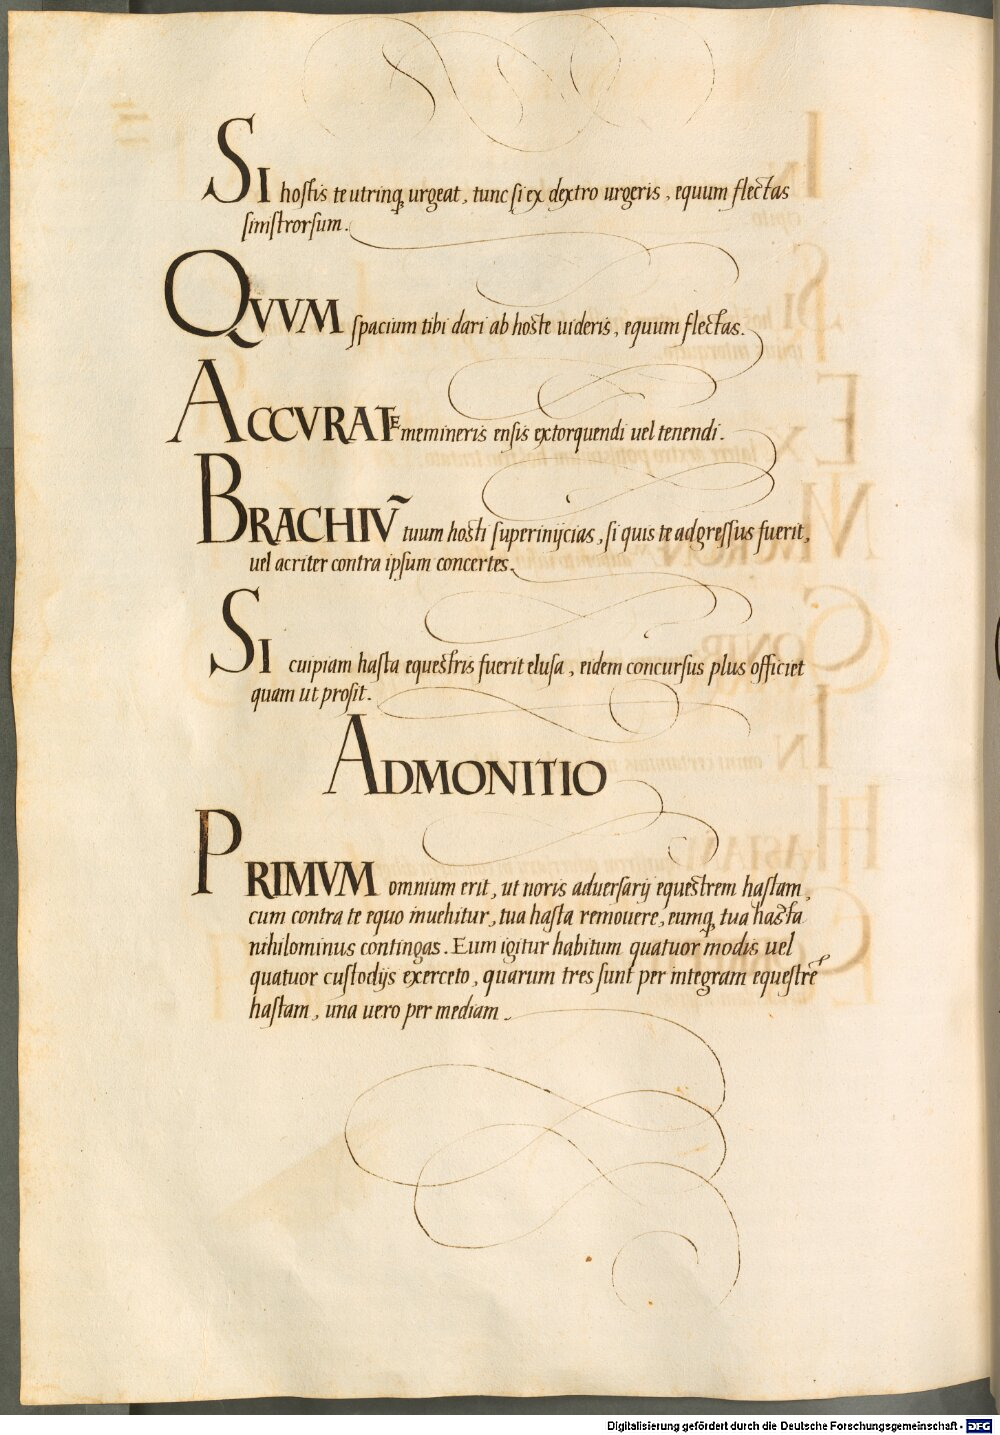 SI hostis te utrinq; urgeat, tunc si ex dextro urgeris, equum flectas
sinistrorsum.
QVVM spacium tibi dari ab hoste uideris, equum flectas.
ACCVRATE memineris ensis extorquendi uel tenendi.
BRACHIṼ tuum hosti superinijcias, si quis te adgressus fuerit,
uel acriter contra ipsum concertes.
SI cuipiam hasta equestris fuerit elusa, eidem concursus plus officiet
quam ut prosit.
ADMONITIO
PRIMVM omnium erit, ut noris aduersarij equestrem hastam,
cum contra te equo inuehitur, tua hasta remouere, eumq; tua hasta
nihilominus contingas. Eum igitur habitum quatuor modis uel
quatuor custodijs exerceto, quarum tres sunt per integram equestrē
hastam, una uero per mediam.
Digitalisierung gefördert durch die Deutsche Forschungsgemeinschaft - DFG